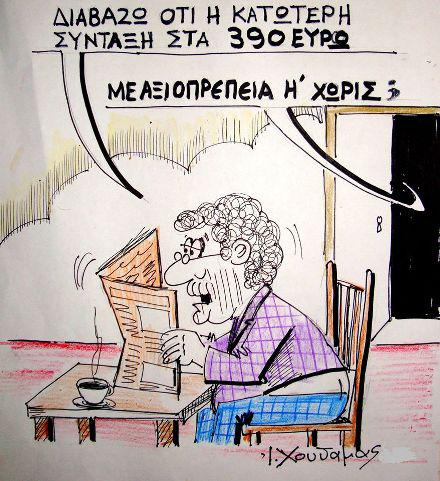 ΔΙΑΒΑΖΩ ΟΤΙ Η ΚΑΤΩΤΕΡΗ
ΣΥΝΤΑΞΗ ΣΤΑ 390 ΕΥΡΩ
ΜΕ ΑΞΙΟΠΡΕΠΕΙΑ Η΄ ΧΩΡΙΣ ;
Ι. Χουταμας